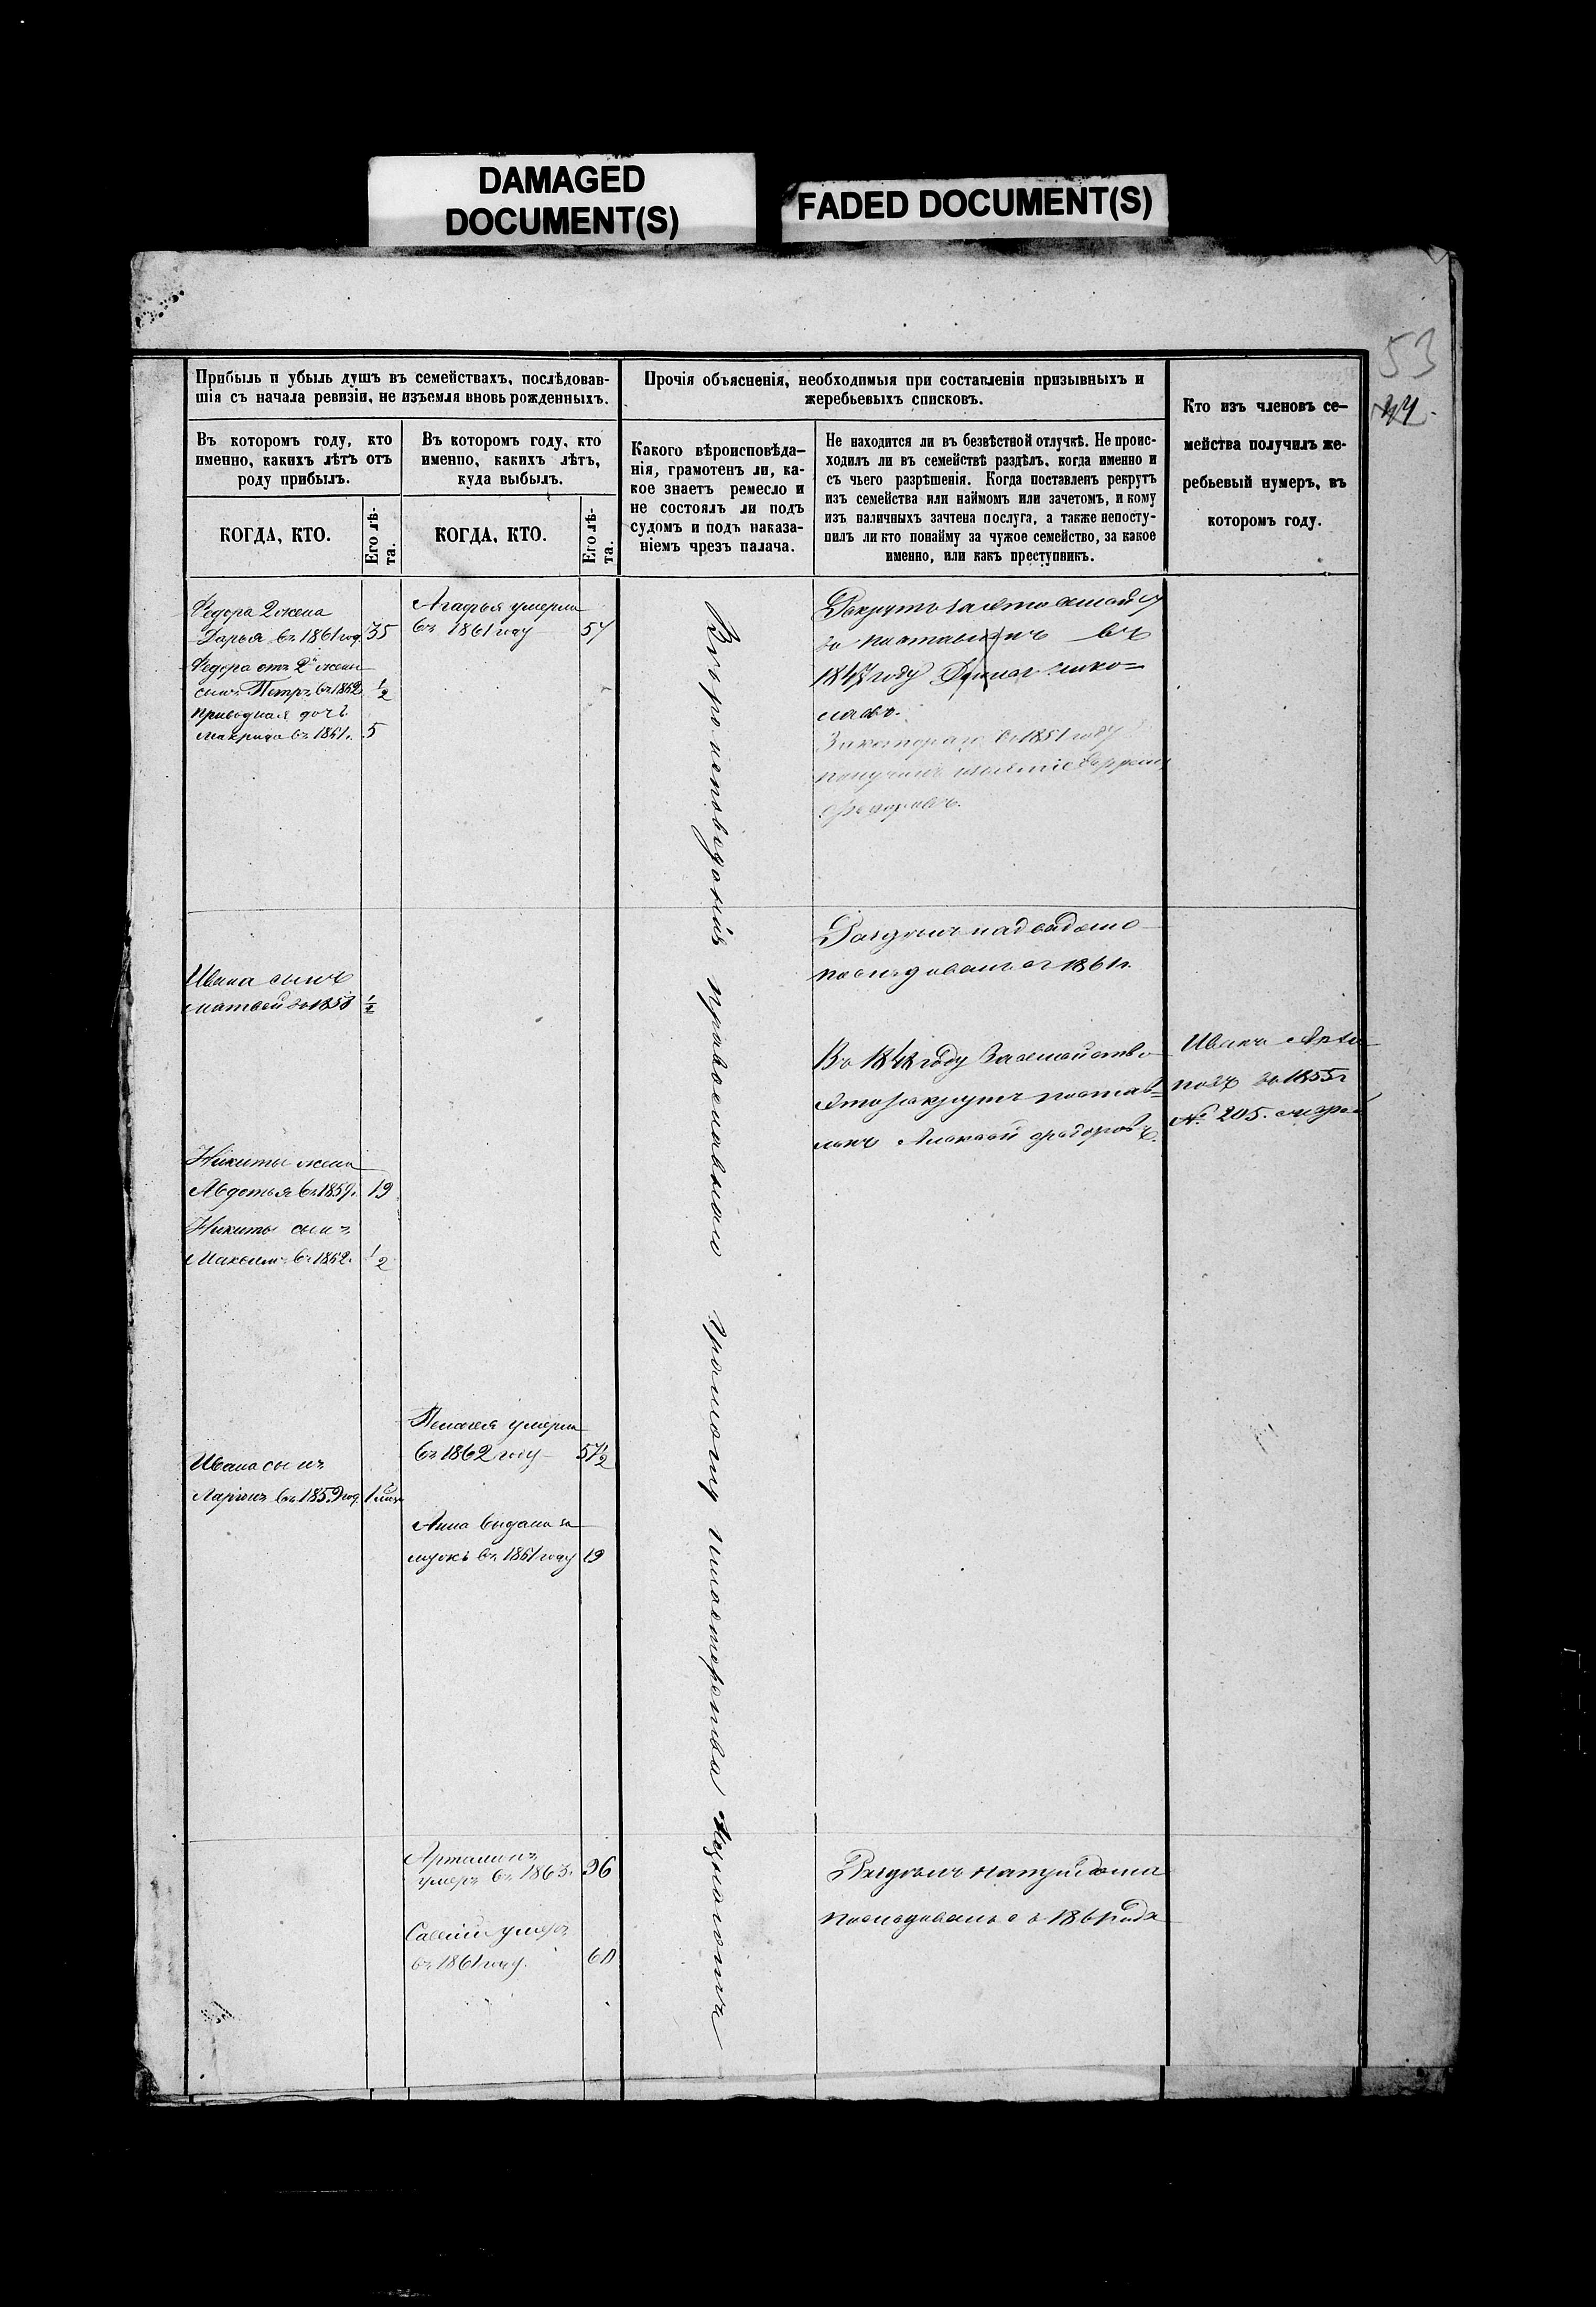 DAMAGED
DOCUMENT(S)
FADED DOCUMENT(S)
53
44
Прибыль и убыль душъ въ семействахъ, послѣдовав-
шія съ начала ревизіи, не изъемля вновь рожденныхъ.
Прочія объясненія, необходимыя при составленіи призывныхъ и
жеребьевыхъ списковъ.
Кто изъ членовъ се-
мейства получилъ же-
ребьевый нумеръ, въ
которомъ году.
Въ которомъ году, кто
именно, какихъ лѣтъ отъ
роду прибылъ.
Въ которомъ году, кто
именно, какихъ лѣтъ,
куда выбылъ.
Какого вѣроисповѣда-
нія, грамотенъ ли, ка-
кое знаетъ ремесло и
не состоялъ ли подъ
судомъ и подъ наказа-
ніемъ чрезъ палача.
Не находится ли въ безвѣстной отлучкѣ. Не проис-
ходилъ ли въ семействѣ раздѣлъ, когда именно и
съ чьего разрѣшенія. Когда поставленъ рекрутъ
изъ семейства или наймомъ или зачетомъ, и кому
изъ наличныхъ зачтена послуга, а также непосту-
пилъ ли кто понайму за чужое семейство, за какое
именно, или какъ преступникъ.
КОГДА, КТО.
Его лѣ-
та.
КОГДА, КТО.
Его лѣ-
та.
Федора 2 жена
Дарья въ 1861 год. 35
Федора отъ 2й жены
сынъ Петръ въ 1862 1/2
приводная дочь
Макрида въ 1861г. 5
Ивана сынъ
Матвей въ 1858 1/2
Никиты жена
Авдотья въ 1859г. 19
Никиты сынъ
Максимъ въ 1862г. 1/2
Ивана сынъ
Ларіонъ въ 1859 год.
Агафья умерла
въ 1861 году 57
Пелагея умерла
въ 1862 году 57 1/2
Анна выдана за
мужъ въ 1861 году 19
Артамонъ
умеръ въ 1863г. 36
умеръ
въ 1861 году. 60
Вероисповеданія православнаго грамоту имастерства незнаютъ
въ
1847 году
лаевъ.
Закотораго въ 1851 году
получилъ
Федоровъ.
Разделъ
последовалъ съ 1861г.
Въ 1848 году Засемейство
это рекрутъ постав=
ленъ Алексей Федоровъ.
Иванъ
въ 1855г
№ 205.
Разделъ
последовалъ съ 1861 года